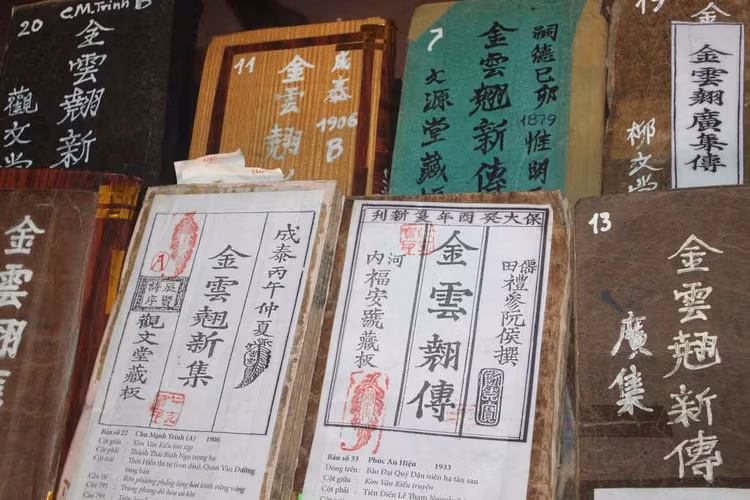 20 C.M.Trinh B
金雲翹新
觀文堂
11
成泰
1906
B
金雲翹
7
嗣德己卯
1879 惟明
金雲翹新傳
文源堂藏板
19
金
金雲翹廣集傳
柳文堂
金雲
成泰丙午仲夏
金雲翹新集
A
觀文堂藏板
Bản số 22 Chu Mạnh Trinh (A) 1906
Cột giữa : Kim Vân Kiều tân tập
Cột phải : Thành Thái Bính Ngọ trọng hạ
Cột trái : Thời Hiền thị tự (con dấu), Quan Văn Đường
tàng bản
保大癸酉年夏新刊
僊田禮參阮侯撰
金雲翹傳
河内福安號藏板
Bản số 33 Phúc An Hiệu 1933
Dòng trên : Bảo Đại Quý Dậu niên hạ tân san
Cột giữa : Kim Vân Kiều truyện
Cột phải : Tiên Điền Lễ Tham Nguyễn
13
金雲翹新傳
廣集